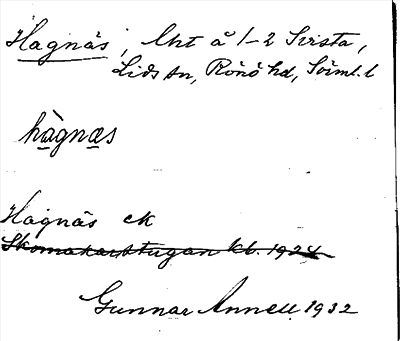 Hagnäs, lht å 1-2 Sirsta,
Lids sn, Rönö hd, Söml. l
hàgnæs
Hagnäs ek
Skomakarstugan kb. 1924
Gunnar Annell 1932